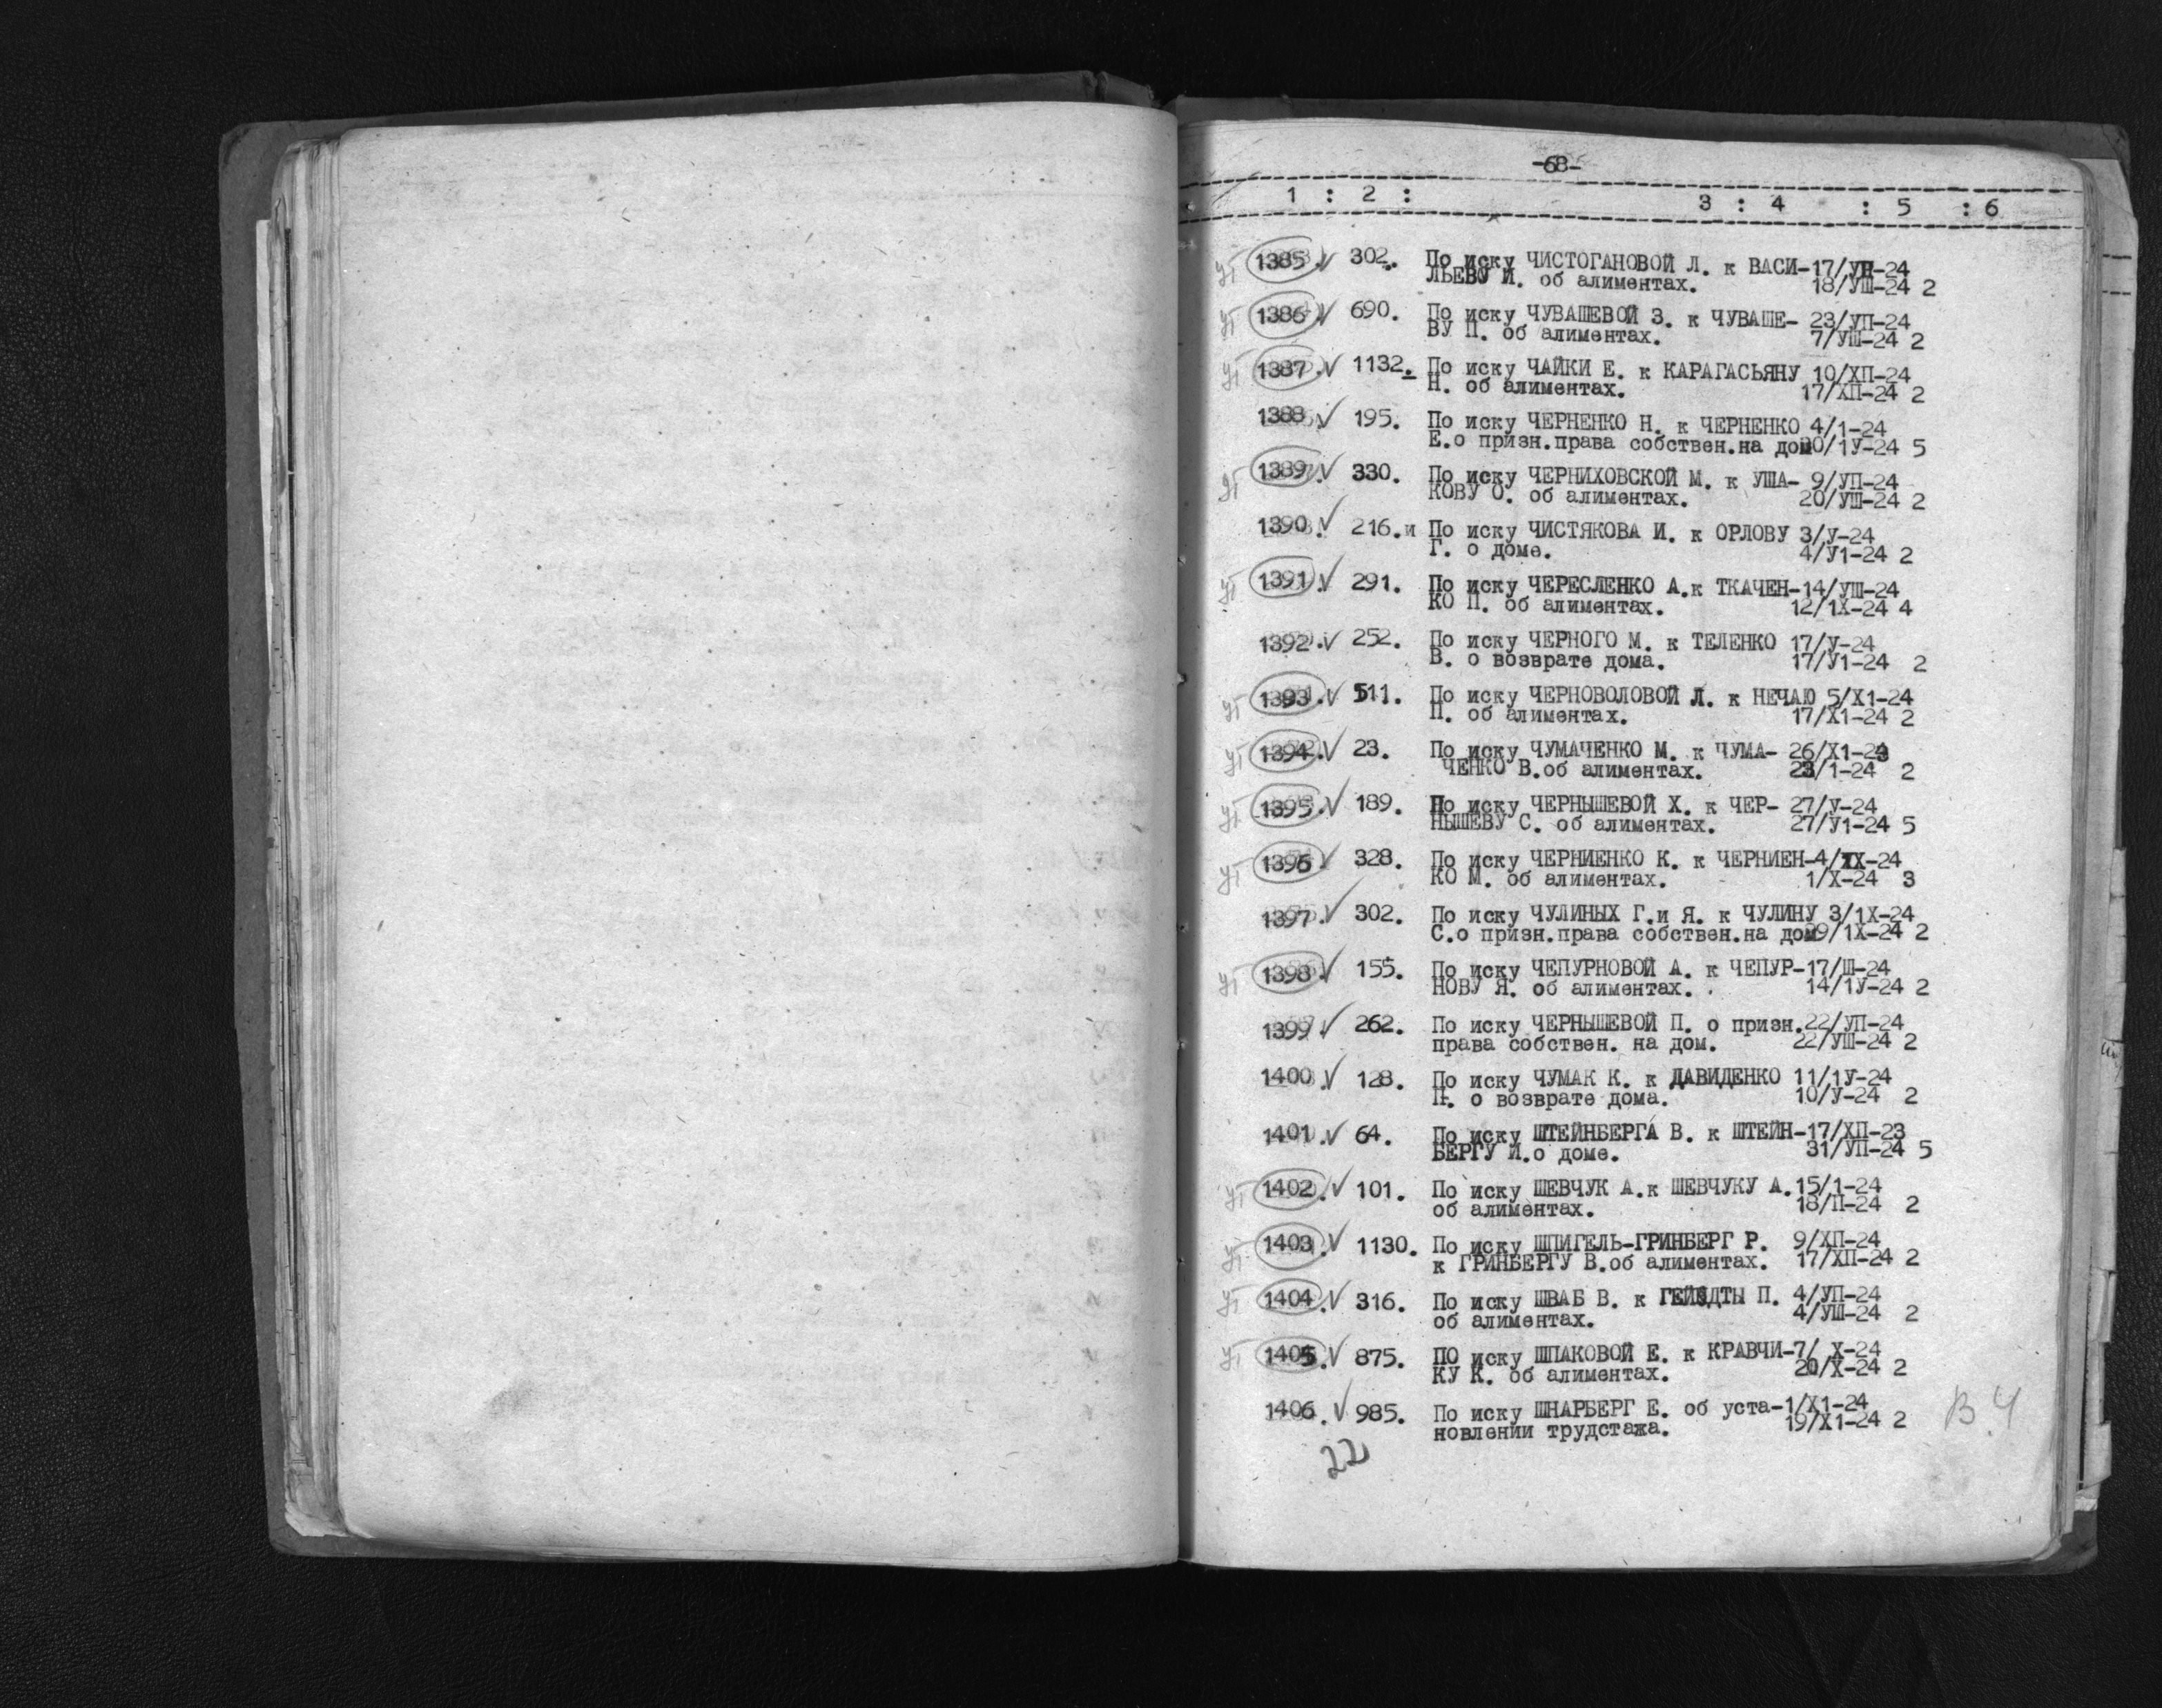 -68-
1 : 2 : 3 : 4 : 5 : 6
1385. 302. По иску ЧИСТОГАНОВОЙ Л. к ВАСИ-17/УП-24
ЛЬЕВУ И. об алиментах. 18/УШ-24 2
1386 690. По иску ЧУВАШЕВОЙ З. к ЧУВАШЕ- 23/УП-24
ВУ П. об алиментах. 7/УШ-24 2
1387. 1132. По иску ЧАЙКИ Е. к КАРАГАСЬЯНУ 10/ХП-24
Н. об алиментах. 17/ХП-24 2
1388. 195. По иску ЧЕРНЕНКО Н. к ЧЕРНЕНКО 4/1-24
Е.о призн.права собствен.на дом 30/1У-24 5
1389. 330. По иску ЧЕРНИХОВСКОЙ М. к УША- 9/УП-24
КОВУ О. об алиментах. 20/УШ-24 2
1390. 216.и По иску ЧИСТЯКОВА И. к ОРЛОВУ 3/У-24
Г. о доме. 4/У1-24 2
1391. 291. По иску ЧЕРЕСЛЕНКО А.к ТКАЧЕН-14/УШ-24
КО П. об алиментах. 12/1Х-24 4
1392. 252. По иску ЧЕРНОГО М. к ТЕЛЕНКО 17/У-24
В. о возврате дома. 17/У1-24 2
1393. 511. По иску ЧЕРНОВОЛОВОЙ Л. к НЕЧАЮ 5/Х1-24
П. об алиментах. 17/Х1-24 2
1394. 23. По иску ЧУМАЧЕНКО М. к ЧУМА- 26/Х1-23
ЧЕНКО В.об алиментах. 23/1-24 2
1395. 189. По иску ЧЕРНЫШЕВОЙ Х. к ЧЕР- 27/У-24
НЫШЕВУ С. об алиментах. 27/У1-24 5
1396 328. По иску ЧЕРНИЕНКО К. к ЧЕРНИЕН-4/1Х-24
КО М. об алиментах. 1/Х-24 3
1397. 302. По иску ЧУЛИНЫХ Г.и Я. к ЧУЛИНУ 3/1Х-24
С.о призн.права собствен.на дом 29/1Х-24 2
1398 155. По иску ЧЕПУРНОВОЙ А. к ЧЕПУР-17/Ш-24
НОВУ Я. об алиментах. 14/1У-24 2
1399 262. По иску ЧЕРНЫШЕВОЙ П. о призн.22/УП-24
права собствен. на дом. 22/УШ-24 2
1400. 128. По иску ЧУМАК К. к ДАВИДЕНКО 11/1У-24
П. о возврате дома. 10/У-24 2
1401. 64. По иску ШТЕЙНБЕРГА В. к ШТЕЙН-17/ХП-23
БЕРГУ И.о доме. 31/УП-24 5
1402. 101. По иску ШЕВЧУК А.к ШЕВЧУКУ А.15/1-24
об алиментах. 18/П-24 2
1403. 1130. По иску ШПИГЕЛЬ-ГРИНБЕРГ Р. 9/ХП-24
к ГРИНБЕРГУ В.об алиментах. 17/ХП-24 2
1404. 316. По иску ШВАБ В. к П. 4/УП-24
об алиментах. 4/УШ-24 2
1405. 875. ПО иску ШПАКОВОЙ Е. к КРАВЧИ-7/ Х-24
КУ К. об алиментах. 20/Х-24 2
1406. 985. По иску ШНАРБЕРГ Е. об уста-1/Х1-24
новлении трудстажа. 19/Х1-24 2
В 4
22